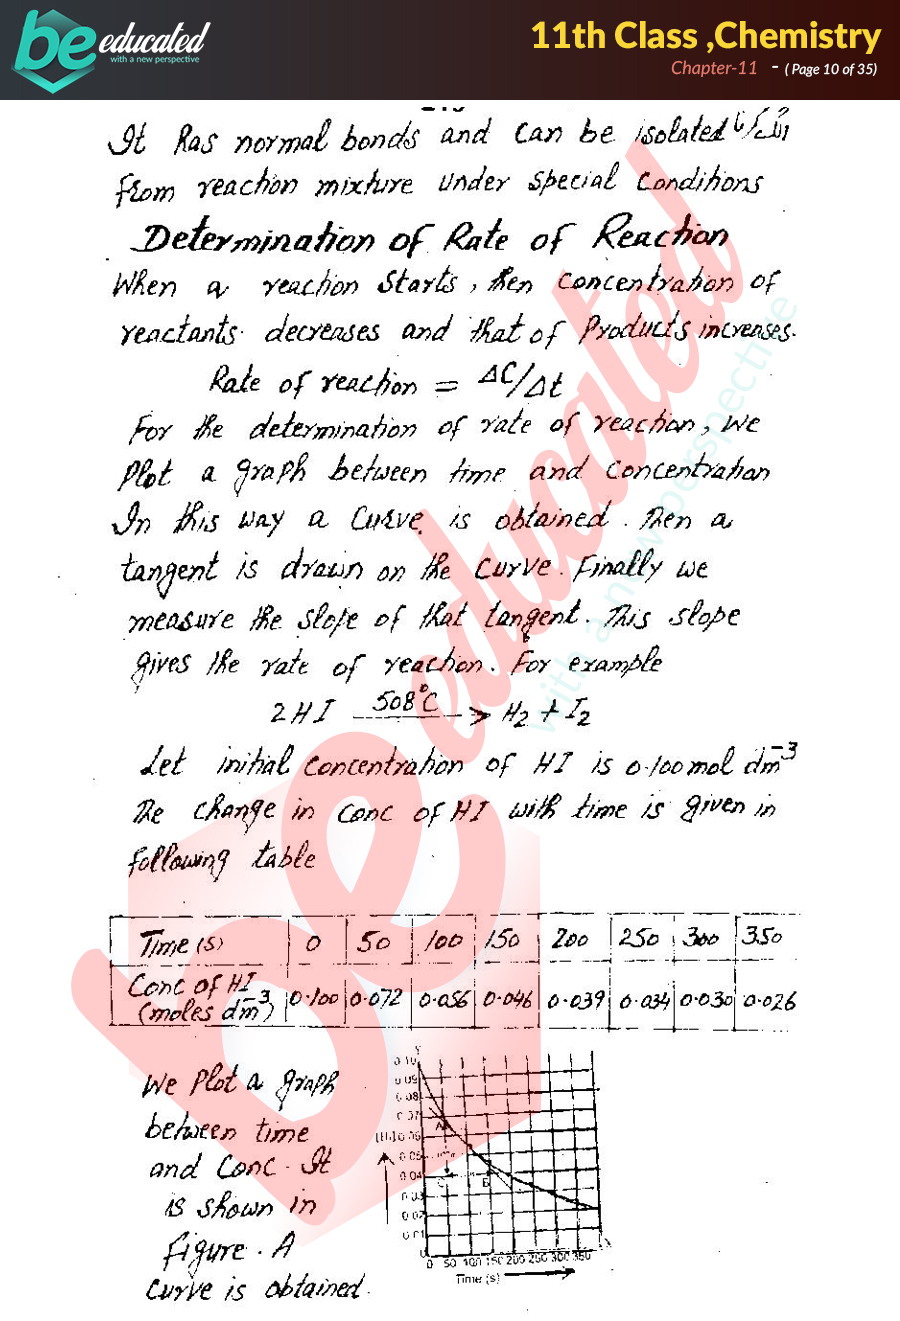 be educated
with a new perspective
11th Class ,Chemistry
Chapter-11 - ( Page 10 of 35)
It has normal bonds and can be isolated
from reaction mixture under special conditions
Determination of Rate of Reaction
When a reaction starts, then concentration of
reactants decreases and that of products increases.
Rate of reaction = ΔC/Δt
For the determination of rate of reaction, we
Plot a graph between time and concentration
In this way a curve is obtained. Then a
tangent is drawn on the curve. Finally we
measure the slope of that tangent. This slope
gives the rate of reaction. For example
2HI 508°C → H₂ + I₂
Let initial concentration of HI is 0.100 mol dm⁻³
The change in conc of HI with time is given in
following table
Time (s) 0 50 100 150 200 250 300 350
Conc of HI
(moles dm⁻³) 0.100 0.072 0.056 0.046 0.039 0.034 0.030 0.026
We Plot a graph
between time
and conc. It
is shown in
figure. A
curve is obtained.
0.10
0.09
0.08
0.07
A
[HI] 0.06
0.05
0.04
C B
0.03
0.02
0.01
0
0 50 100 150 200 250 300 350
Time (s)
be educated
with a new perspective